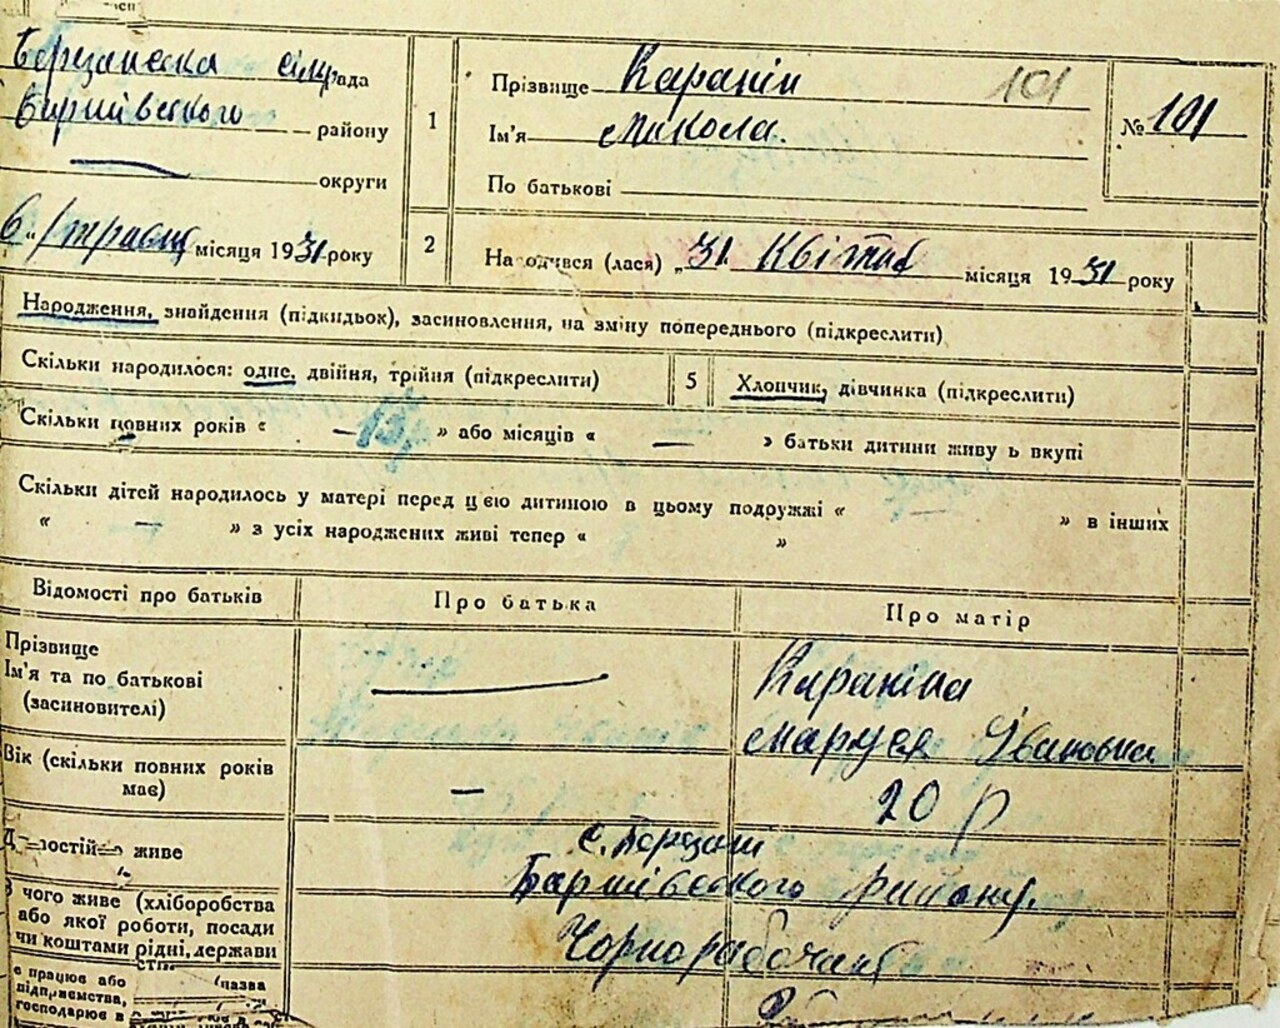 Березанська сільрада
Баришівського району
округи
1
Прізвище Каранін 101
Ім'я Микола.
По батькові
№ 101
6 "/травня місяця 1931 року
2
На одився (лася) „31 Квітня місяця 1931 року
Народження, знайдення (підкидьок), засиновлення, на зміну попереднього (підкреслити)
Скільки народилося: одне, двійня, трійня (підкреслити)
5
Хлопчик, дівчинка (підкреслити)
Скільки повних років « — » або місяців « — » батьки дитини живу ь вкупі
Скільки дітей народилось у матері перед цією дитиною в цьому подружжі « » в інших
« — » з усіх народжених живі тепер « »
Відомості про батьків
Про батька
Про матір
Прізвище
Ім'я та по батькові
(засиновителі)
—
Караніна
Маруся Івановна
Вік (скільки повних років
має)
—
20 р
постійно живе
с. Березань
Баришівського району.
чого живе (хліборобства
або якої роботи, посади
чи коштами рідні, держави
Чорнорабочая
є працює або (назва
підприємства,
господарює в